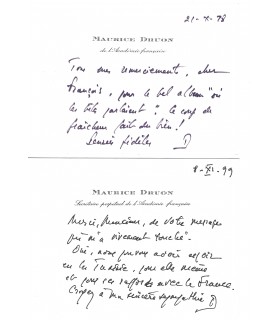 21-X-98
MAURICE DRUON
de l'Académie française
Tous mes remerciements, cher
françois, pour le bel album "où
les bêtes parlaient". le coup de
fraîcheur fait du bien !
Pensées fidèles D
8-XI-99
MAURICE DRUON
Secrétaire perpétuel de l'Académie française
Merci, Monsieur, de votre message
qui m'a vivement touché.
Oui, nous pouvons avoir espoir
en la
et pour ses rapports avec la France.
Croyez à ma sincère sympathie D